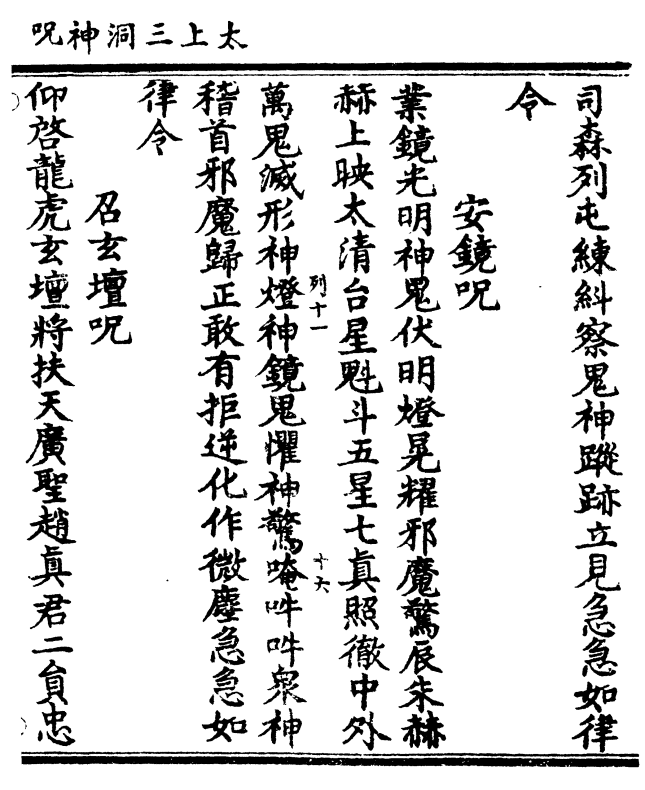 太上三洞神呪
司森列屯練糾察鬼神蹤跡立見急急如律
令
安鏡呪
業鏡光明神鬼伏明燈晃耀邪魔驚辰朱赫
赫上映太清台星魁斗五星七真照徹中外
列十一
十六
萬鬼滅形神燈神鏡鬼懼神驚唵吽吽衆神
稽首邪魔歸正敢有拒逆化作微塵急急如
律令
召玄壇呪
仰啓龍虎玄壇將扶天廣聖趙真君二員忠